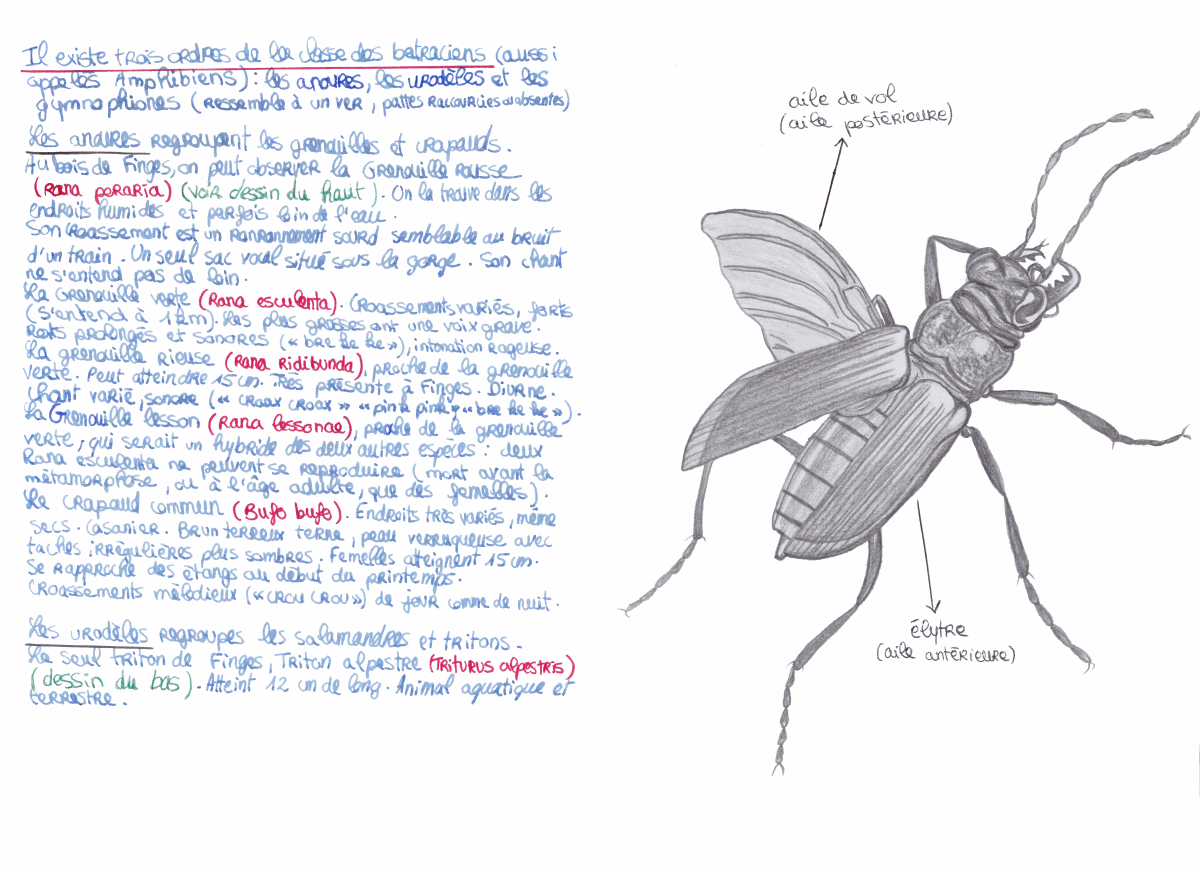 Il existe trois ordres de la classe des batraciens (aussi
appelés Amphibiens) : les anoures, les urodèles et les
gymnophiones (ressemble à un ver, pattes raccourcies ou absentes)
Les anoures regroupent les grenouilles et crapauds.
Au bois de Finges, on peut observer la Grenouille rousse
(Rana poraria) (voir dessin du haut). On la trouve dans les
endroits humides et parfois loin de l'eau.
Son croassement est un ronronnement sourd semblable au bruit
d'un train. Un seul sac vocal situé sous la gorge. Son chant
ne s'entend pas de loin.
La Grenouille verte (Rana esculenta). Croassements variés, forts
(s'entend à 1 km). Les plus grosses ont une voix grave.
Rots prolongés et sonores (« bre ke ke »), intonation rageuse.
La grenouille rieuse (Rana Ridibunda), proche de la grenouille
verte. Peut atteindre 15 cm. Très présente à Finges. Diurne.
Chant varié, sonore (« croax croax » « pink pink » « bre ke ke »).
La Grenouille lesson (Rana lessonae), proche de la grenouille
verte, qui serait un hybride des deux autres espèces : deux
Rana esculenta ne peuvent se reproduire (mort avant la
métamorphose, ou à l'âge adulte, que des femelles).
Le Crapaud commun (Bufo bufo). Endroits très variés, même
secs. Casanier. Brun terreux terne, peau verruqueuse avec
taches irrégulières plus sombres. Femelles atteignent 15 cm.
Se rapproche des étangs au début du printemps.
Croassements mélodieux (« crou crou ») de jour comme de nuit.
Les urodèles regroupes les salamandres et tritons.
Le seul triton de Finges, Triton alpestre (Triturus alpestris)
(dessin du bas). Atteint 12 cm de long. Animal aquatique et
terrestre.
aile de vol
(aile postérieure)
élytre
(aile antérieure)